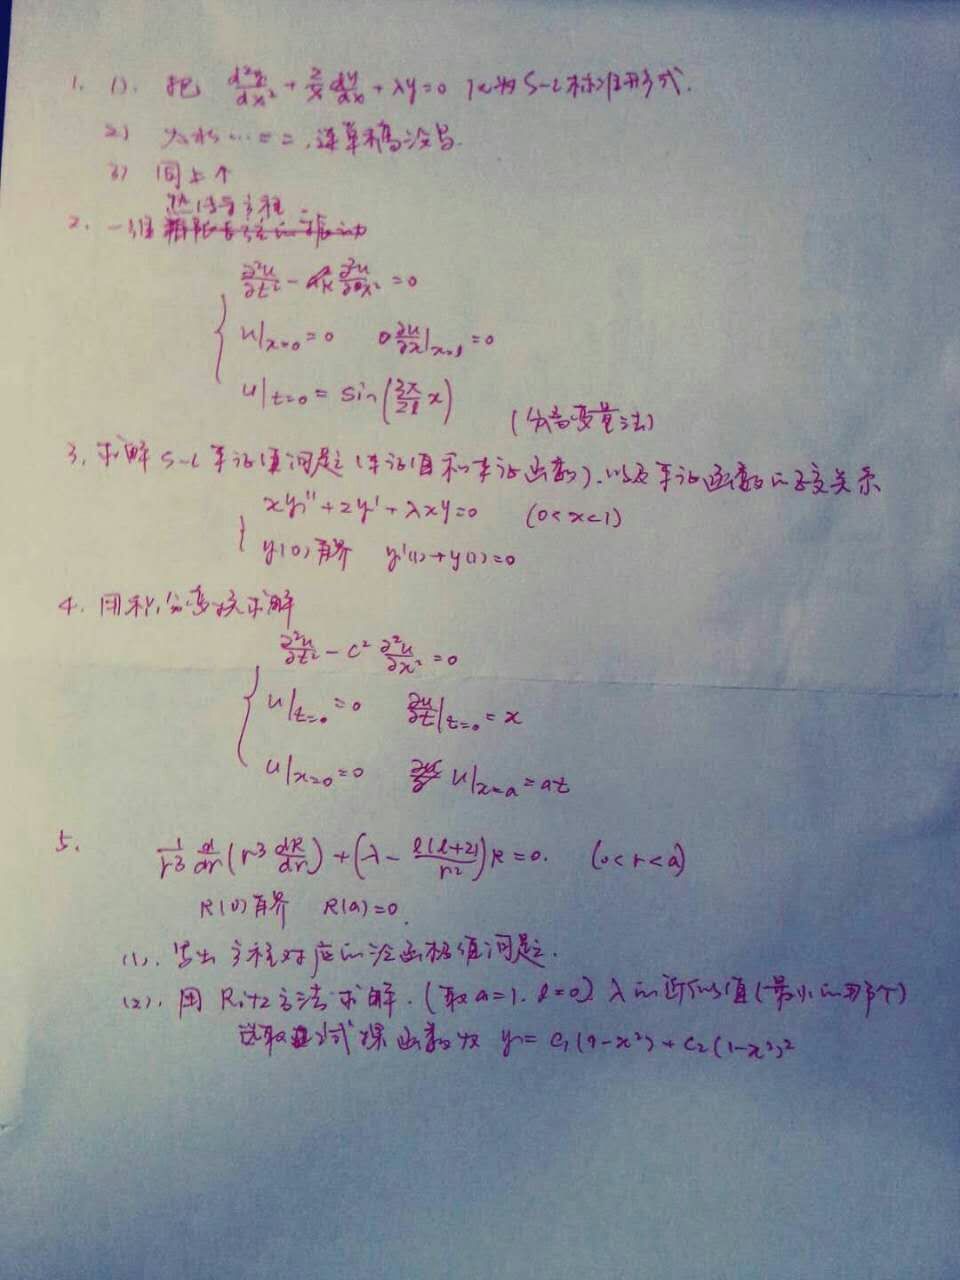 1. 1). 把 d²y/dx² + 2/x dy/dx + λy=0 化为 S-L 标准形式.
2) ⋯ 连草稿没写.
3) 同上个
热传导方程
2. 一维
∂²u/∂t² - k ∂²u/∂x² = 0
u|x=0 = 0 ∂u/∂x|x=l = 0
u|t=0 = sin(3π/2l x)
(分离变量法)
3. 求解 S-L 本征值问题(本征值和本征函数).以及本征函数的正交关系
xy'' + 2y' + λxy=0 (0<x<1)
y(0)有界 y'(1)+y(1)=0
4. 用积分变换求解
∂²u/∂t² - c² ∂²u/∂x² = 0
u|t=0 = 0 ∂u/∂t|t=0 = x
u|x=0 = 0 u|x=a = at
5.
1/r³ d/dr (r³ dR/dr) + (λ - l(l+2)/r²)R = 0. (0<r<a)
R(0)有界 R(a)=0.
(1). 写出方程对应的泛函极值问题.
(2). 用 Ritz 方法求解.(取 a=1. l=0) λ的近似值(最小的那个)
选取 试探函数为 y = c₁(1-x²) + c₂(1-x²)²